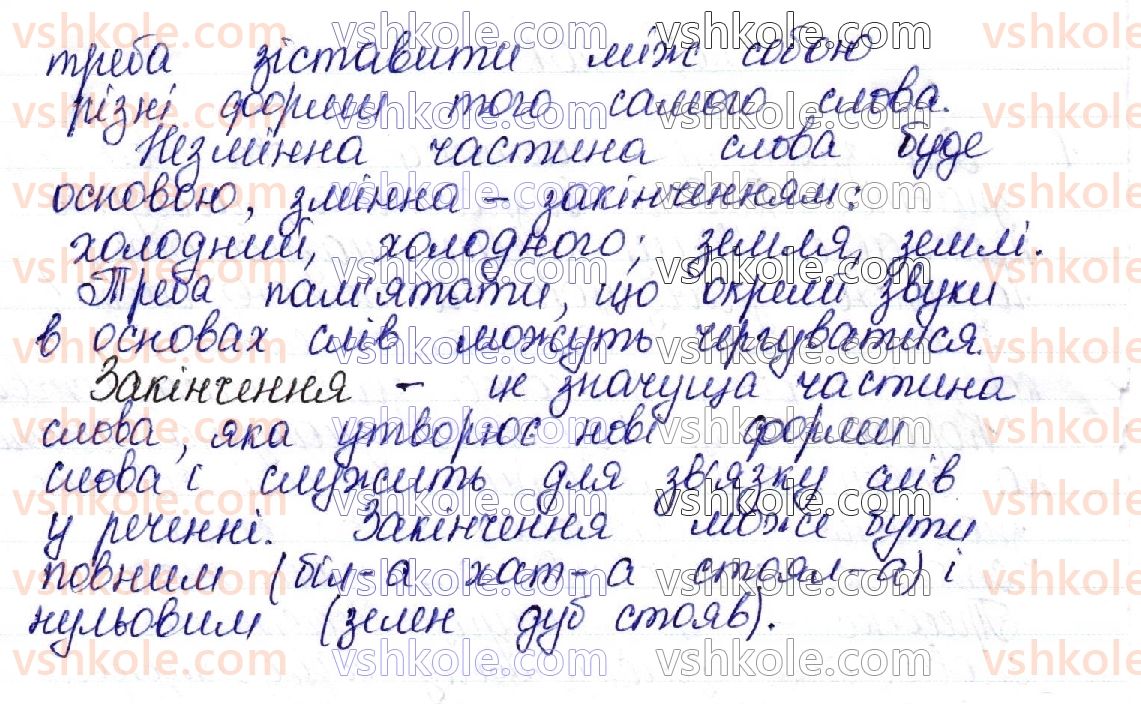 треба зіставити між собою
різні форми того самого слова.
Незмінна частина слова буде
основою, змінна – закінченням:
холодний, холодного; земля, землі.
Треба пам'ятати, що окремі звуки
в основах слів можуть чергуватися.
Закінчення – це значуща частина
слова, яка утворює нові форми
слова і служить для зв'язку слів
у реченні. Закінчення може бути
повним (біл-а хат-а стоял-а) і
нульовим (зелен дуб стояв).